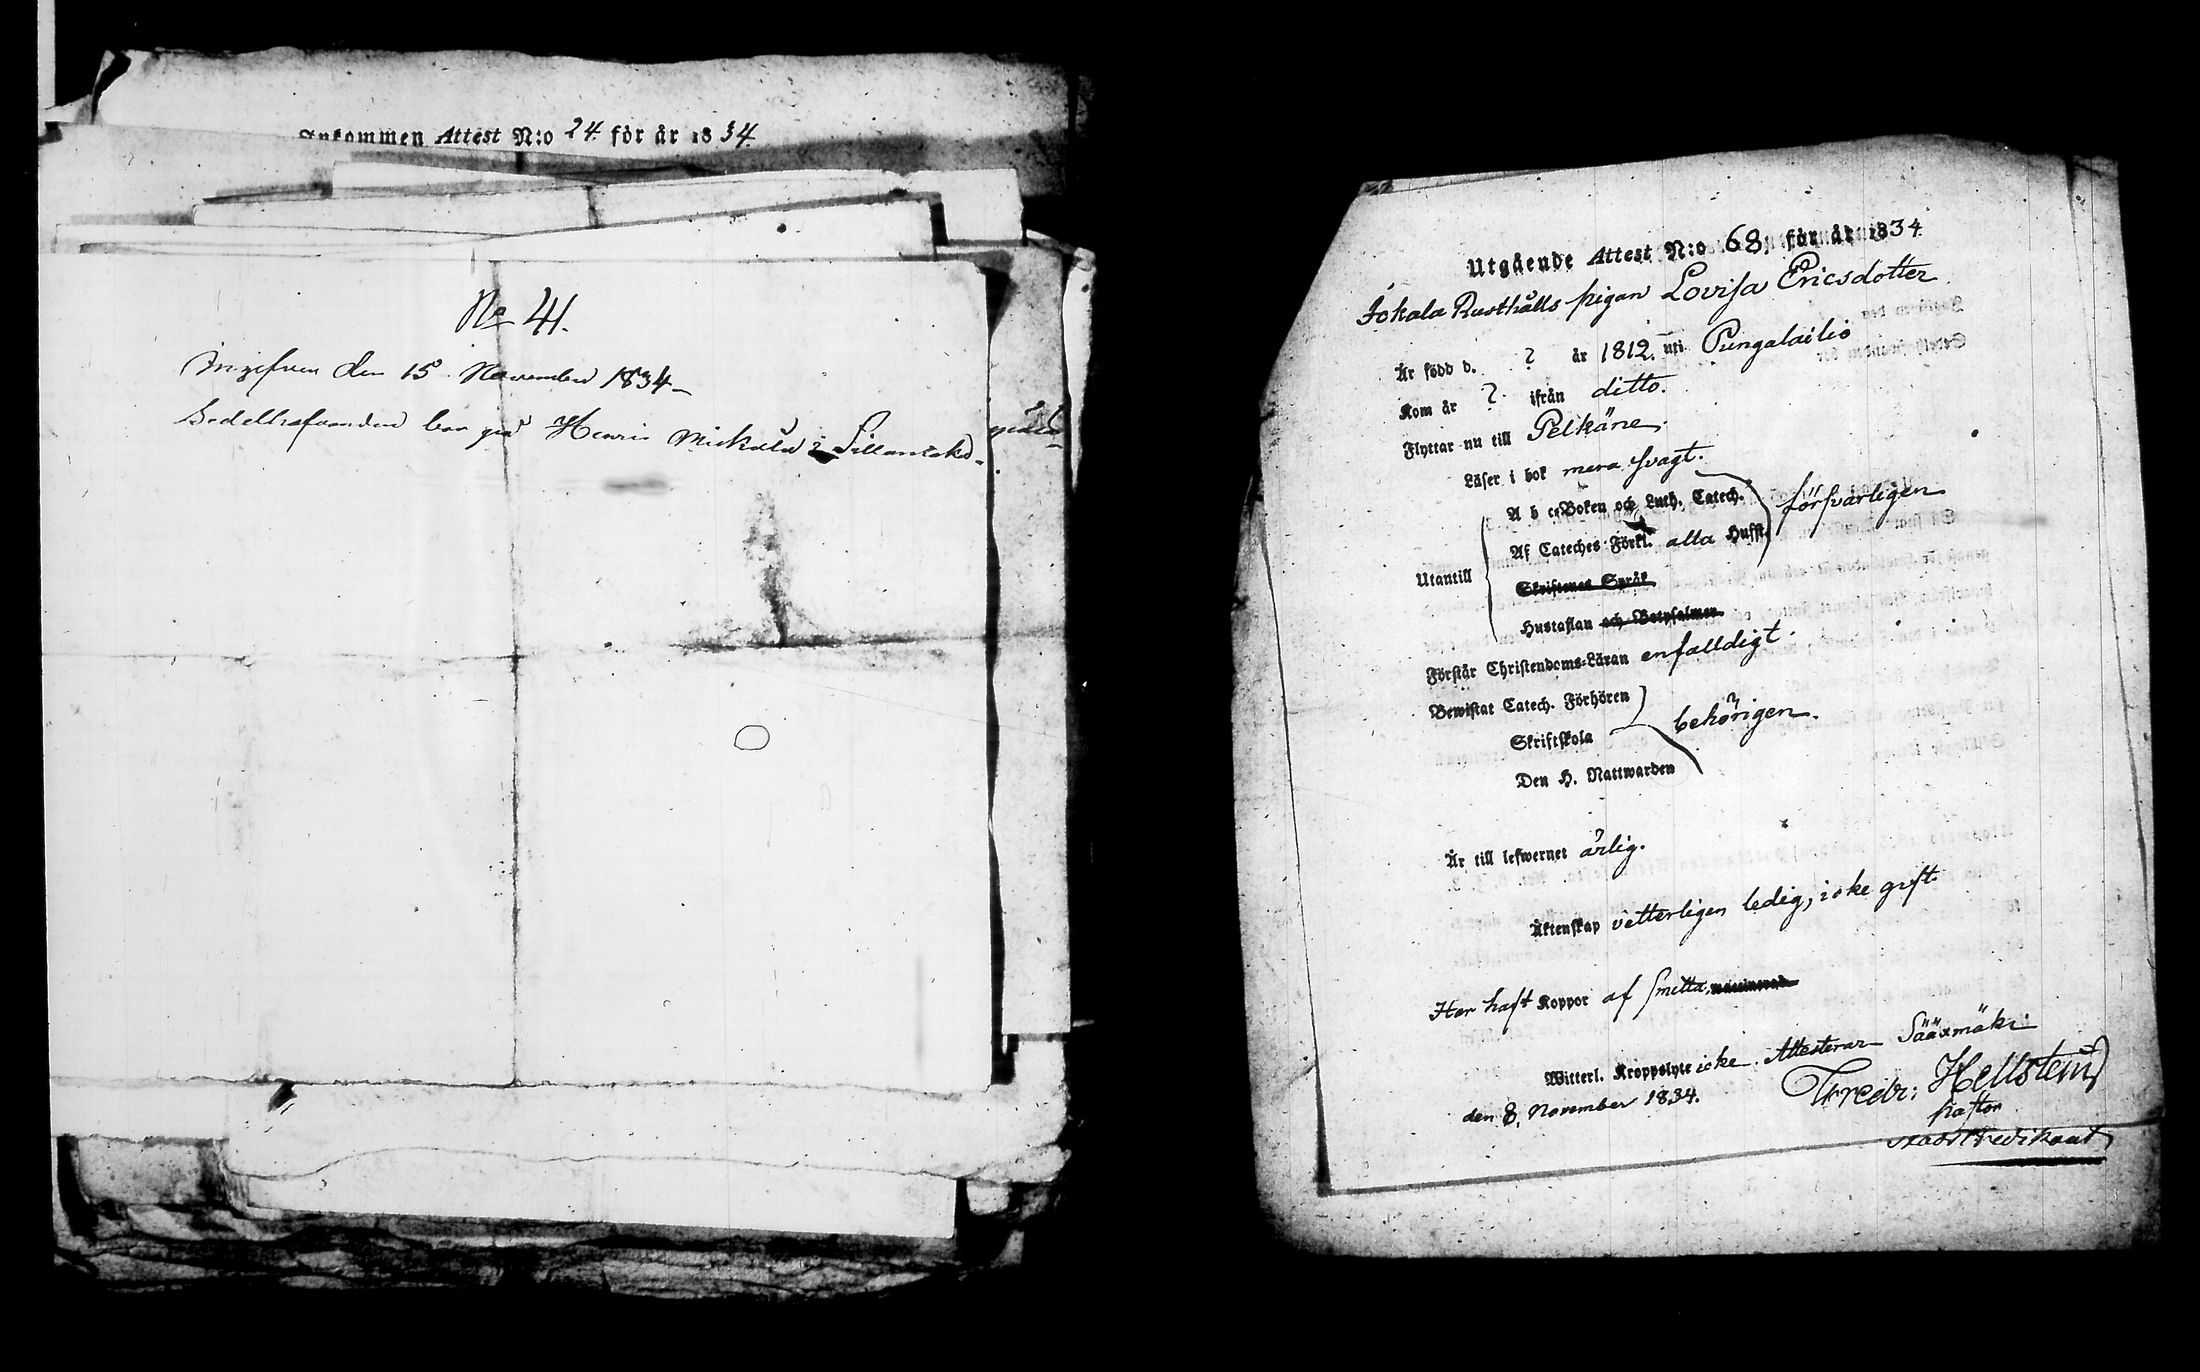 Ankommen Attest N:o 24. för år 1834.
No 41.
Ingifven den 15 November 1834
Sedelhafvanden bor på Henris Mickola i Sillantaka
Utgående Attest N:o 68. för år 1834
Jokala Rusthålls pigan Lovisa Ericsdotter
Är född d. ? år 1812. uti Pungalaitio
Kom år ? ifrån ditto.
Flyttar nu till Pelkäne.
Läser i bok mera svagt.
A b ceBoken och Luth. Catech. försvarligen
Af Cateches Förkl. alla Hufst.
Utantill
Skriftenes Språk
Hustaflan och Botpsalmer
Förstår Christendoms-Läran enfalldigt.
Bewistat Catech. Förhören
Skriftskola behörigen.
Den H. Nattwarden
Är till lefwernet ärlig.
Äktenskap vetterligen ledig, icke gift.
Har haft Koppor af smitta,
Witterl. Kroppslyte icke. Attesterar Sääxmäki
den 8. November 1834. Fredr: Hellsten
pastor